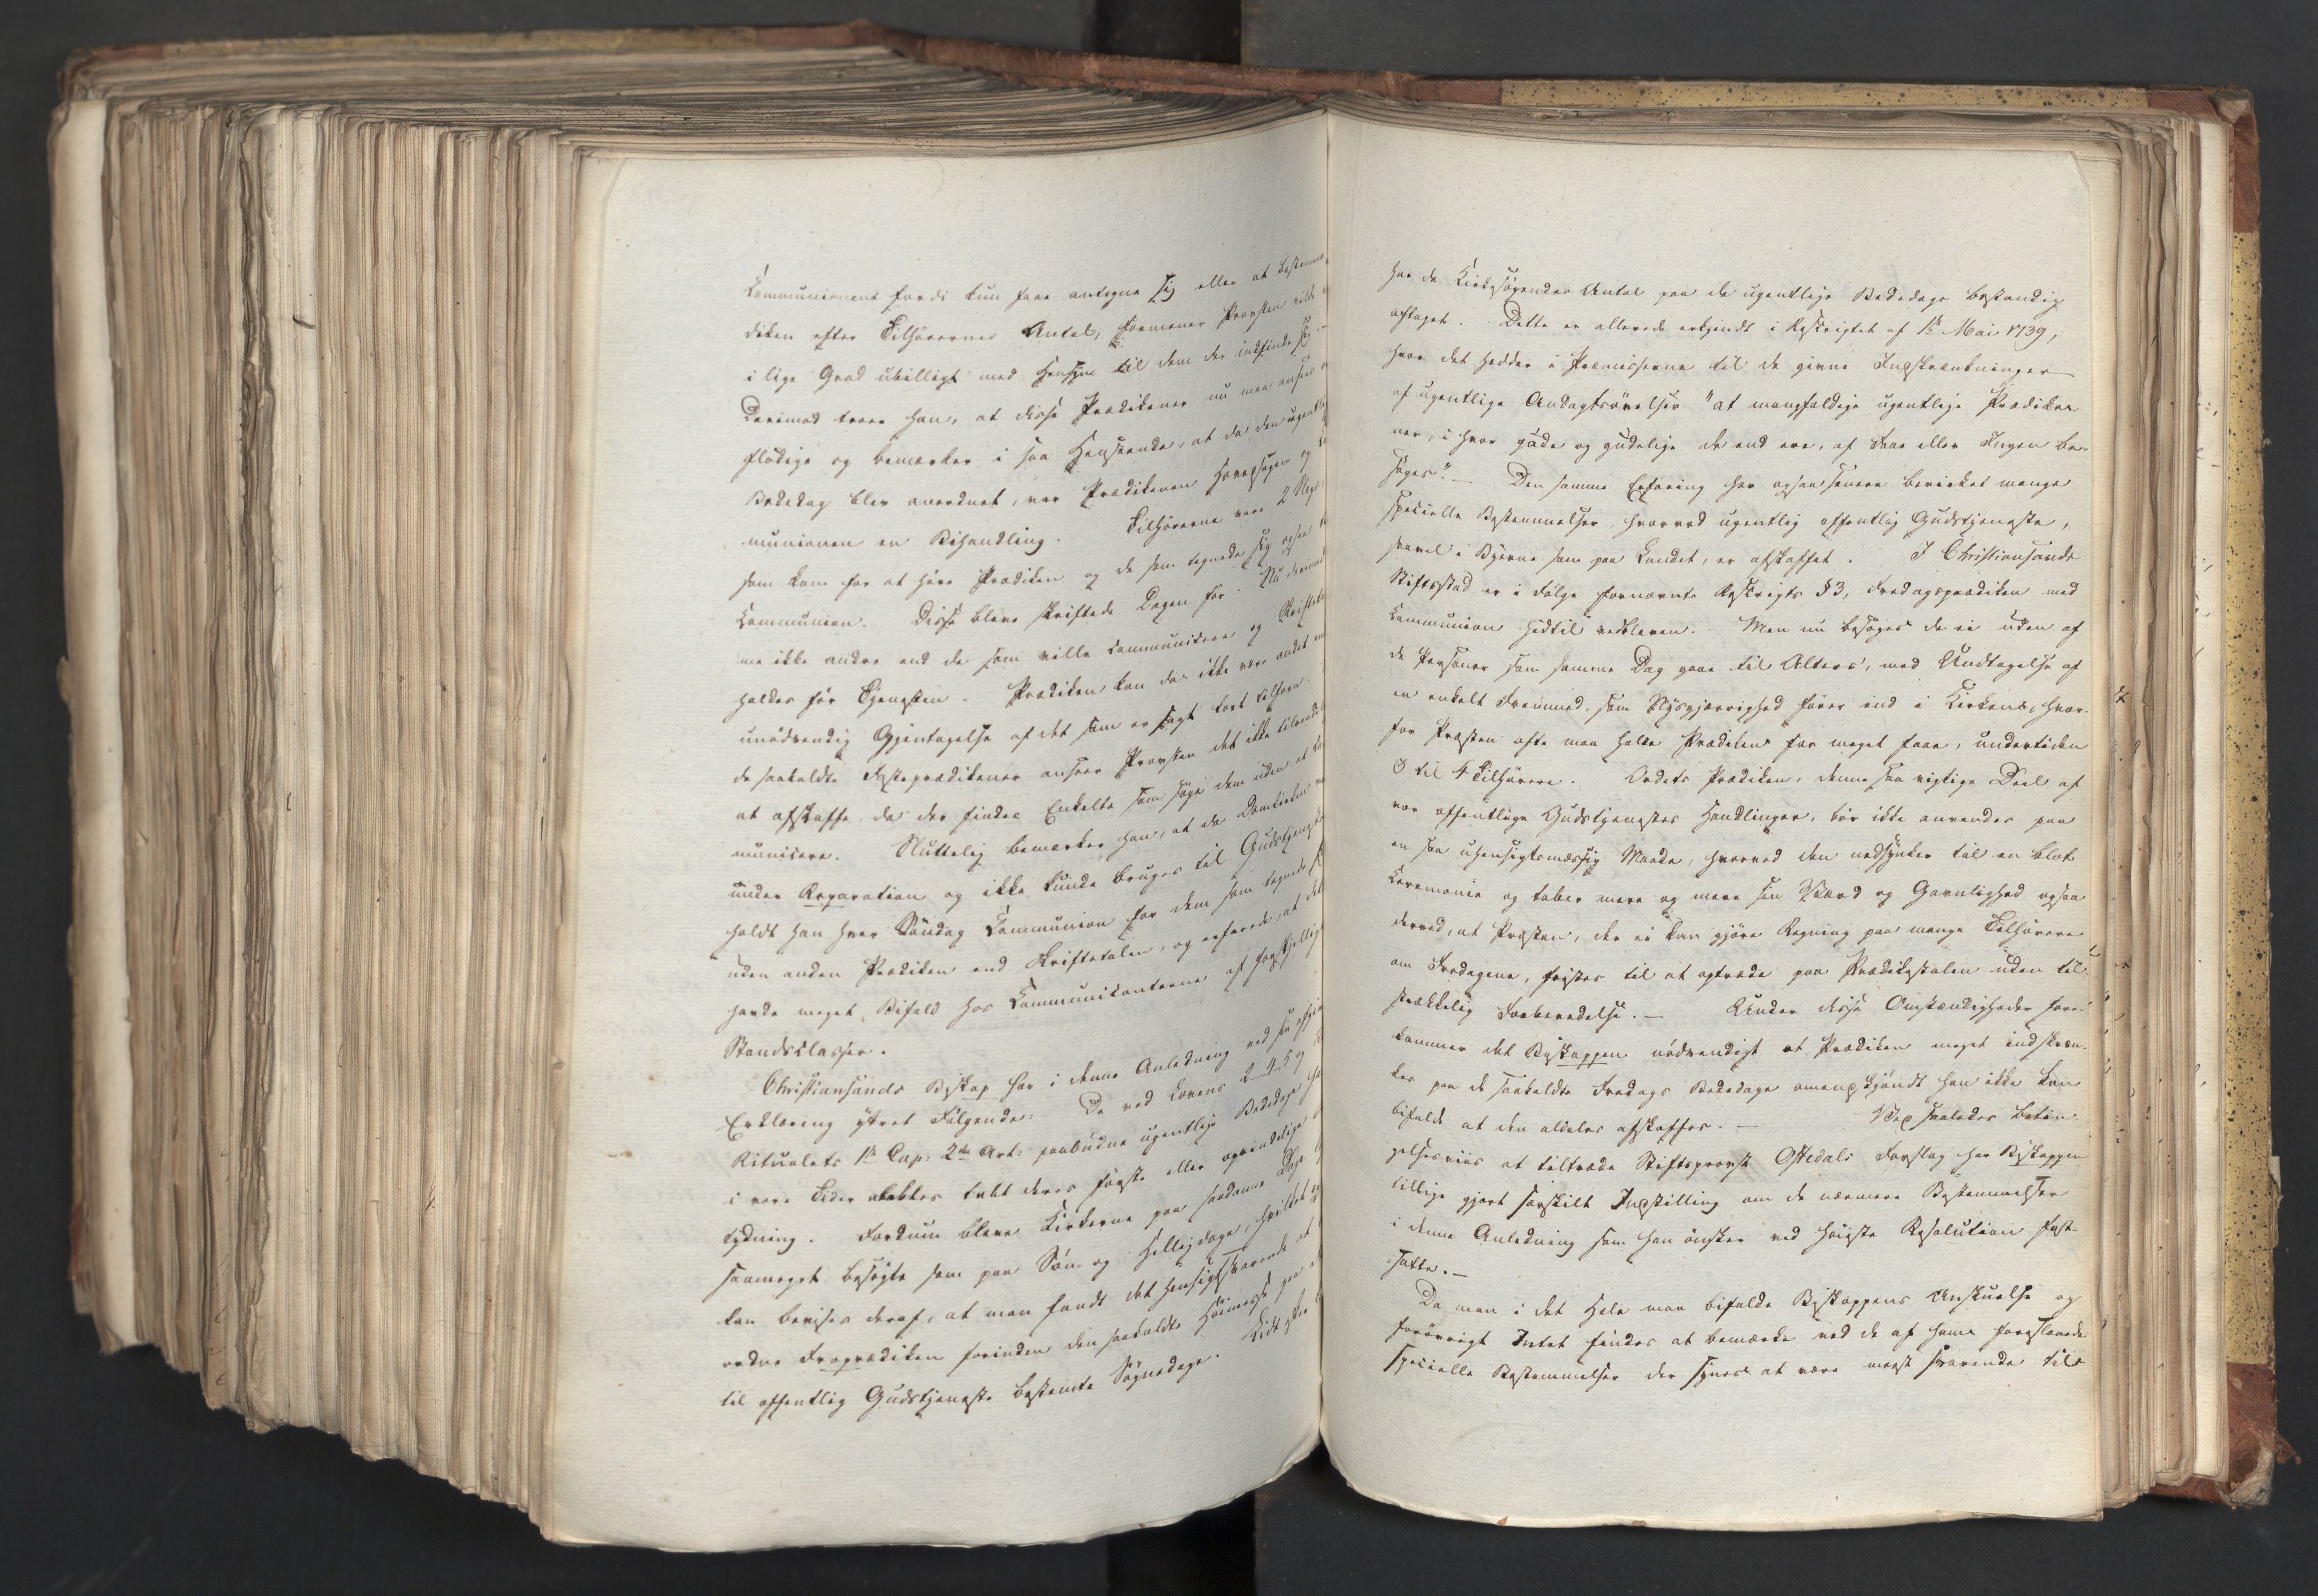 Communionens fordi kun faae antegne sig eller at bestemme
diken efter Tilhørernes Antal, formener Provsten vilde
i lige Grad ubilligt med Hensyn til dem der indfinde sig
Derimod troer han, at disse Prædikener nu maa ansees
flødige og bemærker i saa Henseende, at da den ugentlig
Bededag blev anordnet, var Prædikenen Hovedsagen og
munionen en Bihandling. Tilhørerne vare 2 Slags
som kom for at høre Prædiken og de som tegnede sig ogsaa
Communion. Disse bleve skriftede Dagen før. Nu derimod
me ikke andre end de som ville communicere og Skriftet
holdes før Tjenesten. Prædiken kan da ikke være andet
unødvendig Gjentagelse af det som er sagt kort tilforn.
de saakaldte Fasteprædikener anseer Provsten det ikke tilraadeligt
at afskaffe, da der findes Enkelte som søge dem uden at
municere. Sluttelig bemærker han, at da Domkirken
under Reparation og ikke kunde bruges til Gudstjeneste
holdt han hver Søndag Communion for dem som tegnede
uden anden Prædiken end Skriftetalen, og erfarede, at det
havde meget Bifald hos Communikanterne af forskjellige
Standsclasser.
Christiansands Biskop har i denne Anledning ved sin afgivne
Erklæring ytret Følgende: De ved Lovens 2-4-5 og
Ritualets 1ste Cap: 2det Art: paabudne ugentlige Bededage
i vore Tider tabt deres første eller oprindelige
tydning. Fordum bleve Kirkerne paa saadanne Dage
saameget besøgte som paa Søn- og Helligdage, hvilket
kan bevises deraf, at man fandt det hensigtsvarende at
ordne Froprædiken forinden den saakaldte Høimesse paa
til offentlig Gudstjeneste bestemte Søgnedage. Lidt efter
har de Kirkesøgendes Antal paa de ugentlige Bededage bestandig
aftaget. Dette er allerede erkjendt i Rescriptet af 1ste Mai 1739,
hvor det hedder i Præmisserne til de givne Indskrænkninger
af ugentlige Andagtsøvelser "at mangfoldige ugentlige Prædike-
ner, i hvor gode og gudelige de end ere, af Faae eller Ingen be-
søges". Den samme Erfaring har ogsaa senere bevirket mange
specielle Bestemmelser, hvorved ugentlig offentlig Gudstjeneste,
saavel i Byerne som paa Landet, er afskaffet. I Christiansands
Stiftsstad er i Følge fornævnte Rescripts § 3, Fredagsprædiken med
Communion hidtil vedbleven. Men nu besøges de ei uden af
de Personer som samme Dag gaae til Alters, med Undtagelse af
en enkelt Fremmed, som Nysgjerrighed fører ind i Kirken, hvor-
for Præsten ofte maa holde Prædiken for meget faae, undertiden
3 til 4 Tilhørere. Ordets Prædiken, denne saa vigtige Deel af
vor offentlige Gudstjenestes Handlinger, bør ikke anvendes paa
en saa uhensigtsmæssig Maade, hvorved den nedsynker til en blot
Ceremonie og taber mere og mere sin Værd og Gavnlighed ogsaa
derved, at Præsten, der ei kan gjøre Regning paa mange Tilhørere
om Fredagene, fristes til at optræde paa Prædikestolen uden til-
strækkelig Forberedelse. — Under disse Omstændigheder fore-
kommer det Biskoppen nødvendigt at Prædiken meget indskræn-
kes paa de saakaldte Fredags Bededage omendskjøndt han ikke kan
bifalde at den aldeles afskaffes. — Ved saaledes betin-
gelsesviis at tiltræde Stiftsprovst Oftedals Forslag har Biskoppen
tillige gjort særskilt Indstilling om de nærmere Bestemmelser
i denne Anledning som han ønsker ved høieste Resolution fast-
satte. —
Da man i det Hele maa bifalde Biskoppens Anskuelse og
forøvrigt Intet findes at bemærke ved de af ham foreslaaede
specielle Bestemmelser der synes at være meest svarende til